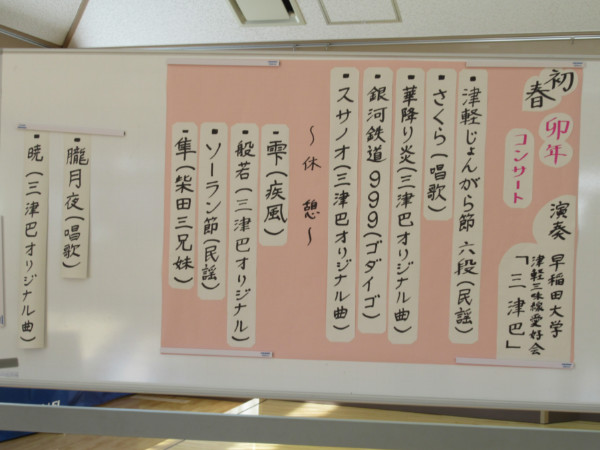 初春
卯年
コンサート
演奏 早稲田大学
津軽三味線愛好会
「三津巴」
▪津軽じょんがら節 六段(民謡)
▪さくら(唱歌)
▪華降り炎(三津巴オリジナル曲)
▪銀河鉄道999(ゴダイゴ)
▪スサノオ(三津巴オリジナル曲)
～休憩～
▪雫(疾風)
▪般若(三津巴オリジナル)
▪ソーラン節(民謡)
▪隼(柴田三兄妹)
▪朧月夜(唱歌)
▪暁(三津巴オリジナル曲)